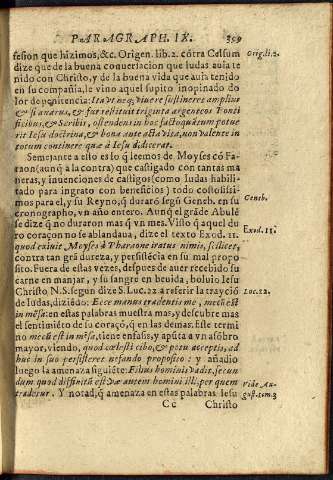 PARAGRAPH. IX. 359
fesion que hizimos, &c. Origen. lib. 2. cõtra Celsum
dize que de la buena conuersacion que Iudas auia te
nido con Christo, y de la buena vida que auia tenido
en su compañia, le vino aquel supito inopinado do
lor de penitencia: Ita vt neq; viuere sustineret amplius
& si auarus, & fur restituit triginta argenteos Ponti
ficibus, & Scribis, ostendens in hoc facto quãtum potue
rit Iesu doctrina, & bona ante acta vita, non valente in
totum continere quæ à Iesu didicerat.
Semejante a ello es lo q̃ leemos de Moyses cõ Fa-
raon (aunq̃ a la contra) que castigado con tantas ma
neras, y inuenciones de castigos (como Iudas habili-
tado para ingrato con beneficios) todo costosissi-
mos para el, y su Reyno, q̃ duraro segũ Geneb. en su
cronographo, vn año entero. Aunq̃ el grãde Abulẽ
se dize q̃ no duraron mas q̃ vn mes. Visto q̃ aquel de
ro coraçon no se ablandaua, dize el texto Exod. 11.
quod exiuit Moyses à Pharaone iratus nimis, scilicet,
contra tan grã dureza, y persistẽcia en su mal propo
sito. Fuera de estas vezes, despues de auer recebido su
carne en manjar, y su sangre en beuida, boluio Iesu
Christo N. S. segun dize S. Luc. 22 a referir la trayciõ
de Iudas, diziẽdo: Ecce manus tradentis me, mecũ est
in mẽsa: en estas palabras muestra mas, y descubre mas
el sentimiẽto de su coraçõ, q̃ en las demas. Este termi
no mecũ est in mẽsa, tiene enfasis, y apũta a vn asõbro
mayor, viendo, quod cœlesti cibo, & potu acceptis, ad
huc in suo persisteret nefando proposito: y añadio
luego la amenaza siguiẽte: Filius hominis vadit, secun
dum quod diffinitũ est væ autem homini illi, per quem
tradetur. Y notad, q̃ amenaza en estas palabras Iesu
Cc Christo
Orig. li. 2.
Geneb.
Exod. 11.
Luc. 22.
Vide Au-
gust. tom. 3